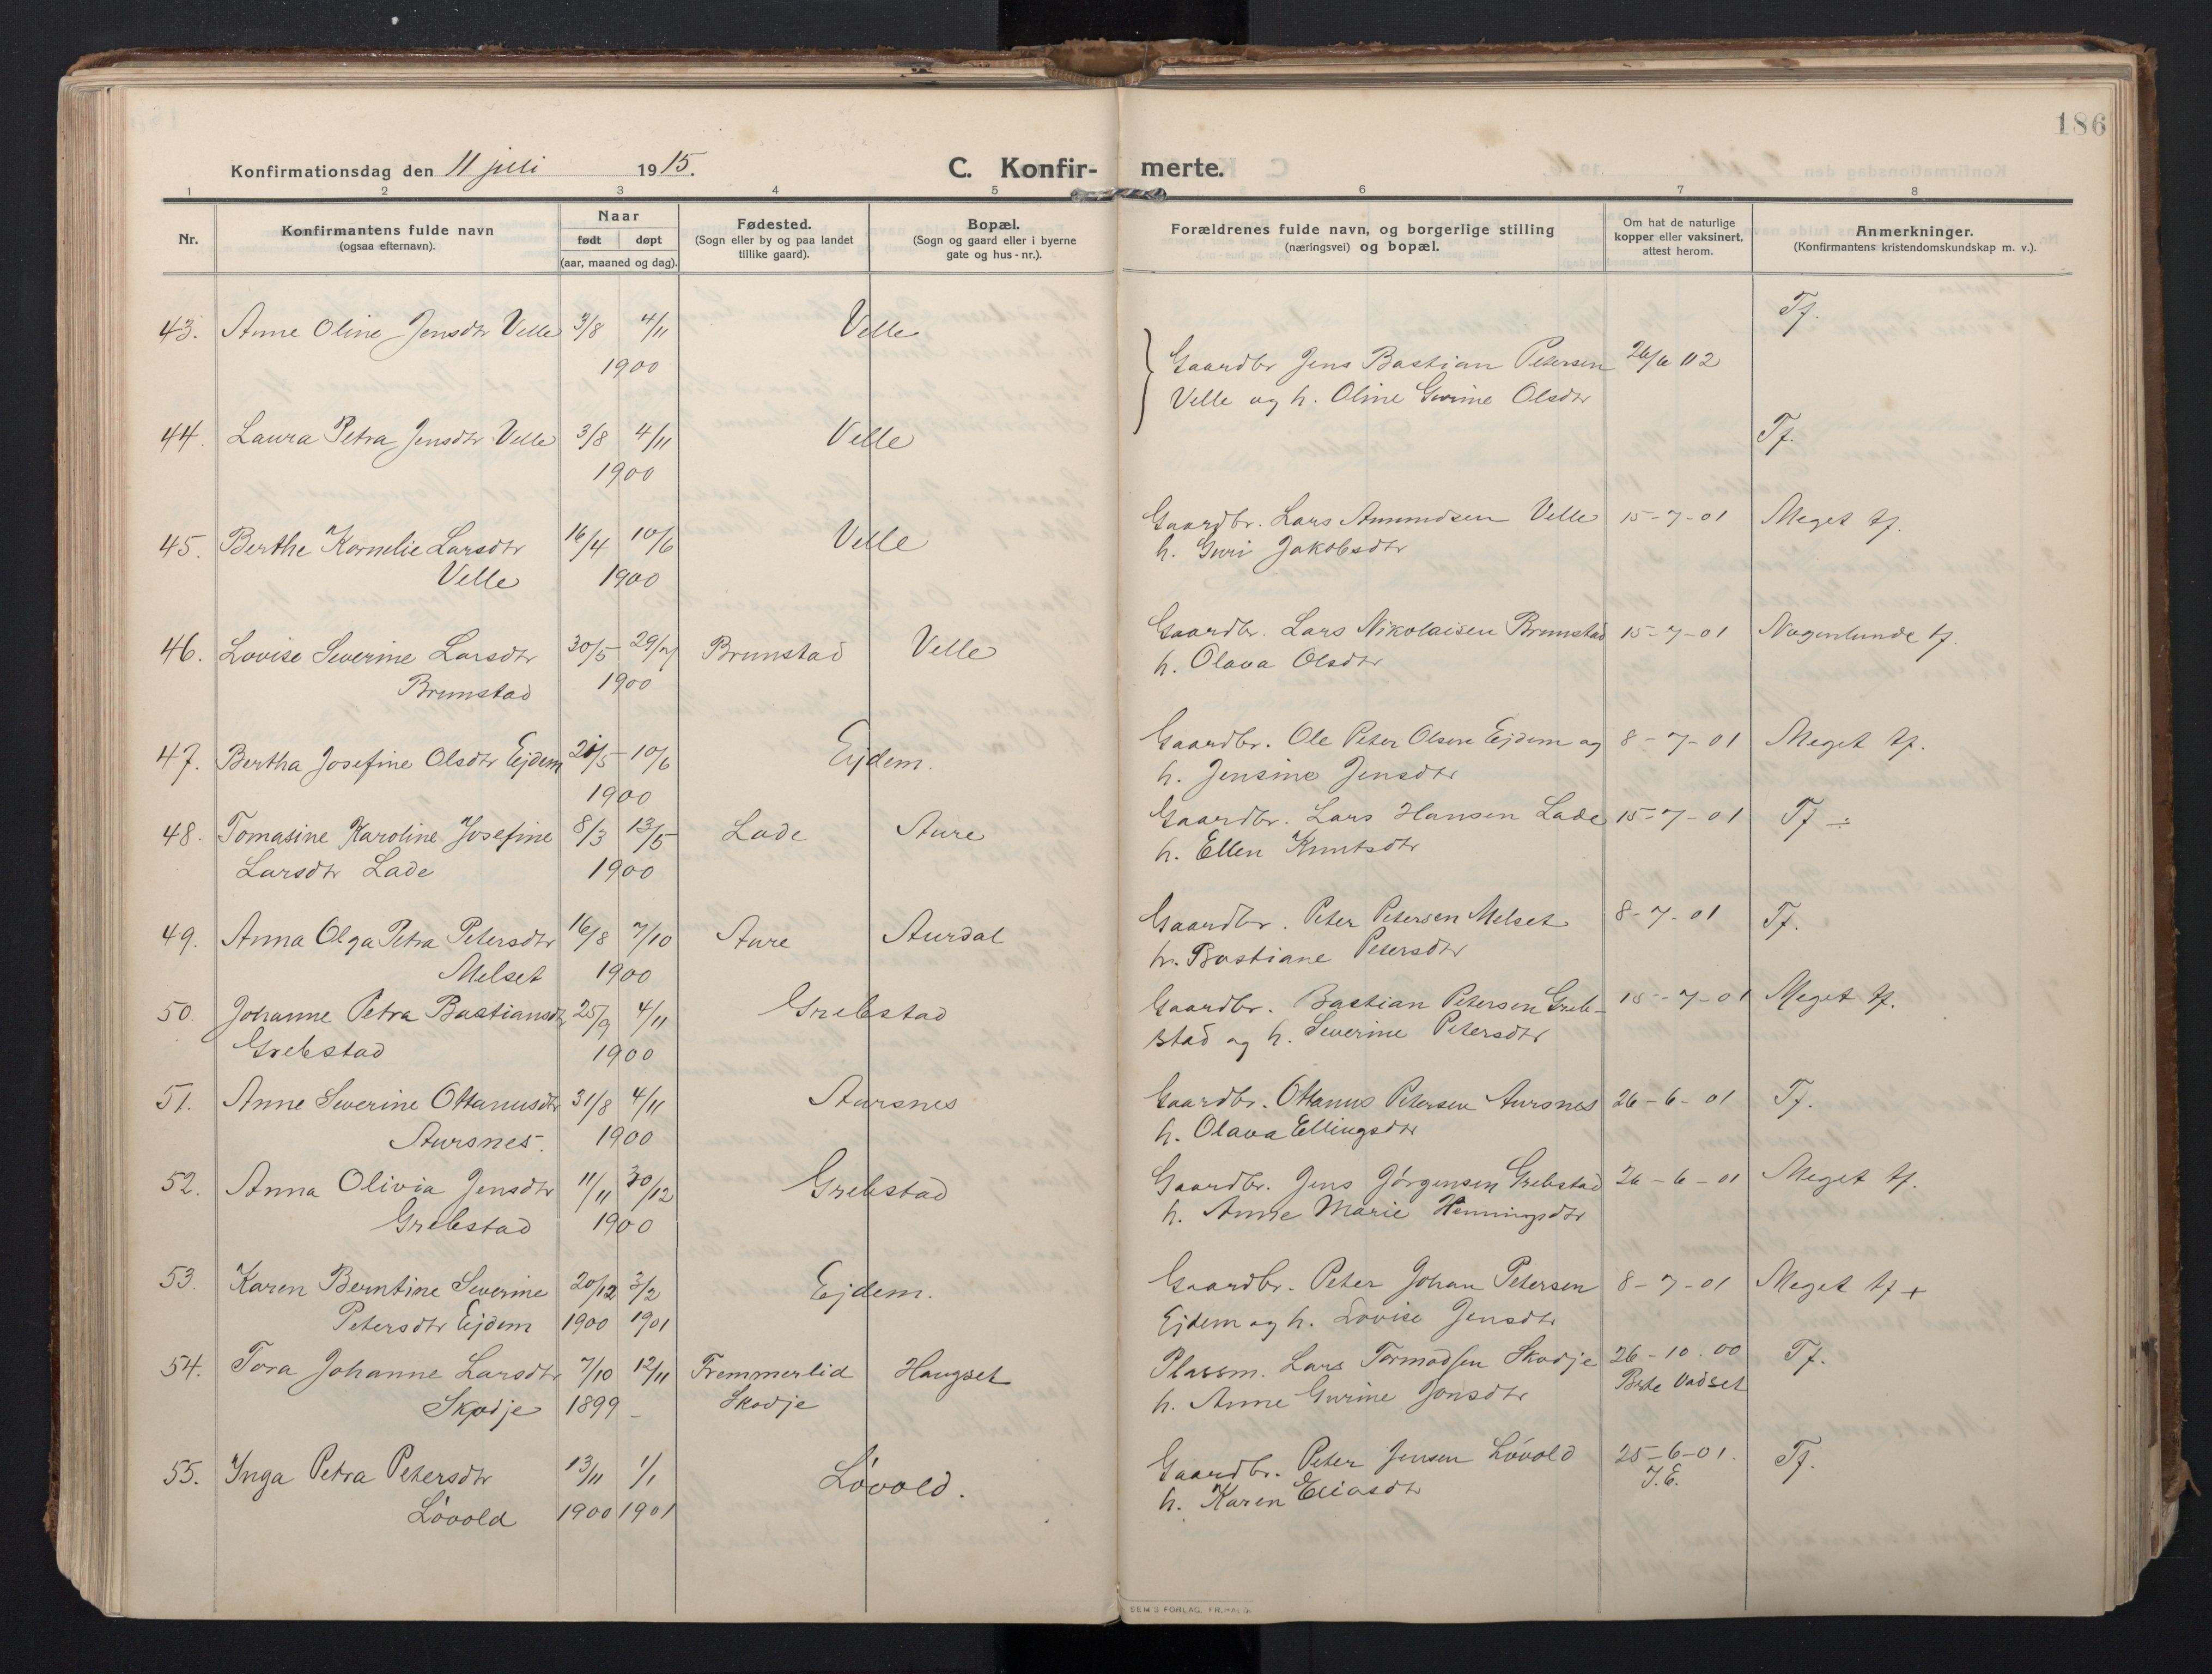 186
Konfirmationsdag den 11 juli 1915.
C. Konfir-merte.
1 2 3 4 5 6 7 8
Nr.
Konfirmantens fulde navn
(ogsaa efternavn).
Naar
født døpt
(aar, maaned og dag).
Fødested.
(Sogn eller by og paa landet
tillike gaard).
Bopæl.
(Sogn og gaard eller i byerne
gate og hus-nr.).
Forældrenes fulde navn, og borgerlige stilling
(næringsvei) og bopæl.
Om hat de naturlige
kopper eller vaksinert,
attest herom.
Anmerkninger.
(Konfirmantens kristendomskundskap m. v.).
43. Anne Oline Jensdtr Velle 3/8 4/11 Velle Tf.
1900
Gaardbr Jens Bastian Petersen 26/6 02
Velle og h. Oline Gurine Olsdtr
44. Laura Petra Jensdtr Velle 3/8 4/11 Velle Tf.
1900
45. Berthe Kornelie Larsdtr 16/4 10/6 Velle Gaardbr. Lars Amundsen Velle 15-7-01 Meget tf.
Velle 1900 h. Guri Jakobsdtr
46. Lovise Severine Larsdtr 30/5 29/7 Brunstad Velle Gaardbr. Lars Nikolaisen Brunstad 15-7-01 Nogenlunde tf.
Brunstad 1900 h. Olava Olsdtr
47. Bertha Josefine Olsdtr Ejdem /5 10/6 Ejdem. Gaardbr. Ole Peter Olsen Ejdem og 8-7-01 Meget tf.
1900 h. Jensine Jensdtr
48. Tomasine Karoline Josefine 8/3 13/5 Lade Aure Gaardbr. Lars Hansen Lade 15-7-01 Tf ÷
Larsdtr Lade 1900 h. Ellen Knutsdtr
49. Anna Olga Petra Petersdtr 16/8 7/10 Aure Aursdal Gaardbr. Peter Petersen Melset 8-7-01 Tf.
Melset 1900 h. Bastiane Petersdtr
50. Johanne Petra Bastiansdtr 25/9 4/11 Grebstad Gaardbr. Bastian Petersen Greb- 15-7-01 Meget tf.
Grebstad 1900 stad og h. Severine Petersdtr
51. Anne Severine Ottanusdtr 31/8 4/11 Aursnes Gaardbr. Ottanus Petersen Aursnes 26-6-01 Tf.
Aursnes. 1900 h. Olava Ellingsdtr
52. Anna Olivia Jensdtr 11/11 30/12 Grebstad Gaardbr. Jens Jørgensen Grebstad 26-6-01 Meget tf.
Grebstad 1900 h. Anne Marie Henningsdtr
53. Karen Berntine Severine 20/12 3/2 Ejdem. Gaardbr. Peter Johan Petersen 8-7-01 Meget tf +
Petersdtr Ejdem 1900 1901 Ejdem og h. Lovise Jensdtr
54. Tora Johanne Larsdtr 7/10 12/11 Fremmerlid Haugset Plassm. Lars Tormodsen Skodje 26-10.00 Tf.
Skodje 1899 - Skodje h. Anne Gurine Jonsdtr Vadset
55. Inga Petra Petersdtr 13/11 1/1 Løvold. Gaardbr. Peter Jensen Løvold 25-6-01. Tf.
Løvold 1900 1901 h. Karen Eliasdtr J.E.
SEM'S FORLAG, FR.HALD.